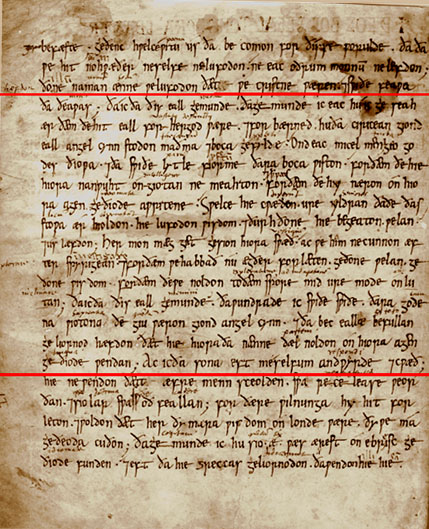 befæste. Geðenc hwelc witu us ða becomon for ðisse worulde. ða ða
we hit nohwæðer ne selfe ne lufodon. ne eac oðrum monnum ne lefdon;
ðone naman ænne we lufodon ðæt we cristne wæren. ⁊ swiðe feawa
ða ðeawas; Ða ic ða ðis eall gemunde. ða gemunde ic eac hu ic geseah
ær ðæm ðe hit eall forhergod wære. ⁊ forbærned. hu ða ciricean giond
eall angelcynn stodon maðma ⁊ boca gefylde. Ond eac micel mengeo go
des ðiowa. ⁊ ða swiðe lytle fiorme ðara boca wiston. forðæm ðe hie
hiora nanwuht ongiotan ne meahton. forðæm ðe hy næron on hio
ra agen geðiode awritene. Swelce hie cwæden. ure yldran ða ðe ðas
stowa ær hioldon. hie lufodon wisdom. ⁊ ðurh ðone hie begeaton welan.
⁊ us læfdon; Her mon mæg giet gesion hiora swæð. ac we him ne cunnon æf
ter spyrigean. forðæm we habbað nu ægðer forlæten ge ðone welan ge
ðone wisdom. forðam ðe we noldon to ðæm spore mid ure mode onlu
tan; Ða ic ða ðis eall gemunde. ða wundrade ic swiðe swiðe. ðara gode
na wiotona ðe giu wæron giond angelcynn. ⁊ ða bec ealla befullan
geliornod hæfdon ðæt hie hiora ða nænne dæl noldon on hiora agen
geðiode wendan; Ac ic ða sona eft me selfum andwyrde ⁊ cwæð;
hie ne wendon ðætt æfre menn sceolden. swa recelease weor
ðan. ⁊ sio lar swa oðfeallan; for ðære wilnunga hy hit for
leton. ⁊ woldon ðæt her ðy mara wisdom on londe wære. ðy we ma
geðeoda cuðon; Ða gemunde ic hu sio æ wæs ærest on ebrisc ge
ðiode funden. ⁊ eft ða hie creccas geliornodon. ða wendon hie hie